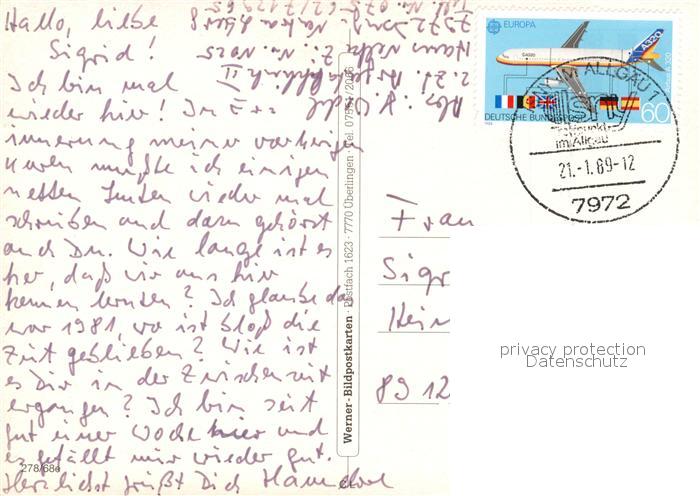 Hallo, liebe
Sigrid!
Ich bin mal
wieder hier! In Er-
innerung meiner vorherigen
Kuren mußte ich einigen
netten Leuten wieder mal
schreiben und dazu gehörst
auch Du. Wie lange ist es
her, daß wir uns hier
kennen lernten? Ich glaube das
war 1981, wo ist bloß die
Zeit geblieben? Wie ist
es Dir in der Zwischenzeit
ergangen? Ich bin seit
gut einer Woche hier und
es gefällt mir wieder gut.
Herzlichst grüßt Dich
278/686
Werner-Bildpostkarten · Postfach 1623 · 7770 Überlingen · Tel. 07551/2066
EUROPA
A320
DEUTSCHE BUNDESPOST
60
IM ALLGÄU 1
isny
im Allgäu
21.-1.89-12
7972
Frau
Sigr
Hein
8912
privacy protection
Datenschutz